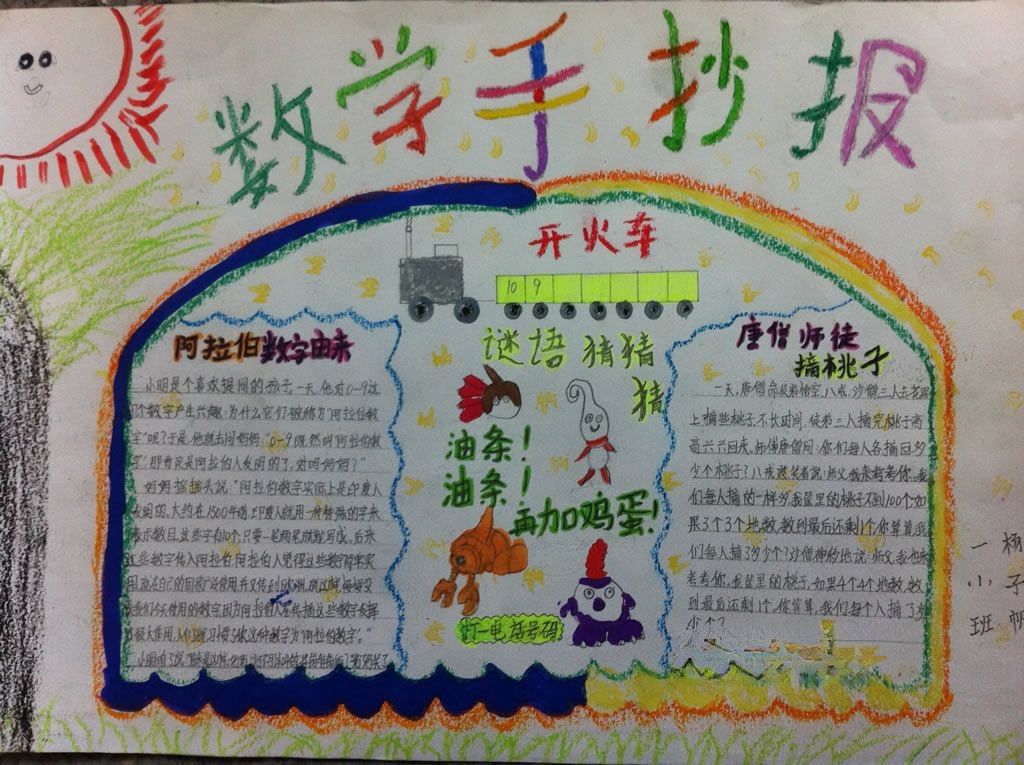 数学手抄报
开火车
10 9
阿拉伯数字由来
小明是个喜欢提问的孩子.一天,他对0-9这
几个数字产生兴趣:为什么它们被称为"阿拉伯数
字"呢?于是,他就去问妈妈:"0-9既然叫阿拉伯数
字,那肯定是阿拉伯人发明的了,对吗妈妈?"
妈妈摇摇头说:"阿拉伯数字实际上是印度人
发明的.大约在1500年前,印度人就用一种特殊的字来
表示数目,这些字有10个,只要一笔两笔就能写成.后来
这些数字传入阿拉伯,阿拉伯人觉得这些数字简单实
用,就在自己的国家广泛使用,并又传到了欧洲.就这样,慢慢变
成我们今天使用的数字.因为阿拉伯人在传播这些数字发挥
了很大作用,人们就习惯了称这种数字为"阿拉伯数字"."
谜语猜猜
猜
油条!
油条!
再加鸡蛋!
打一电话号码
唐僧师徒
摘桃子
一天,唐僧命徒弟悟空,八戒,沙僧三人去花果
山摘些桃子.不长时间,徒弟三人摘完桃子高
高兴兴回来.师傅唐僧问:你们每人各摘回多
少个桃子?八戒憨笑着说:师父,我来考考你.我
们每人摘的一样多,我筐里的桃子不到100个,如
果3个3个地数,数到最后还剩1个.你算算,我
们每人摘了多少个?沙僧神秘地说:师父,我也来
考考你.我筐里的桃子,如果4个4个地数,数
到最后还剩1个.你算算,我们每个人摘了多
少个?
一 杨
小 子
班 帆